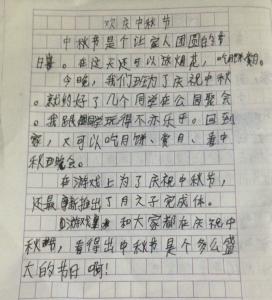 欢庆中秋节
中秋节是个让家人团圆的节
日。在这天还可以放烟花,吃月饼,赏月。
今晚,我们班为了庆祝中秋
。就约好了几个同学在公园聚会
。我跟同学玩得不亦乐乎。回到
家,又可以吃月饼、赏月、看中
秋晚会。
在游戏上为了庆祝中秋节,
还最新推出了月之子完成体。
游戏里和大家都在庆祝中
秋节,看得出中秋节是个多么盛
大的节日啊!